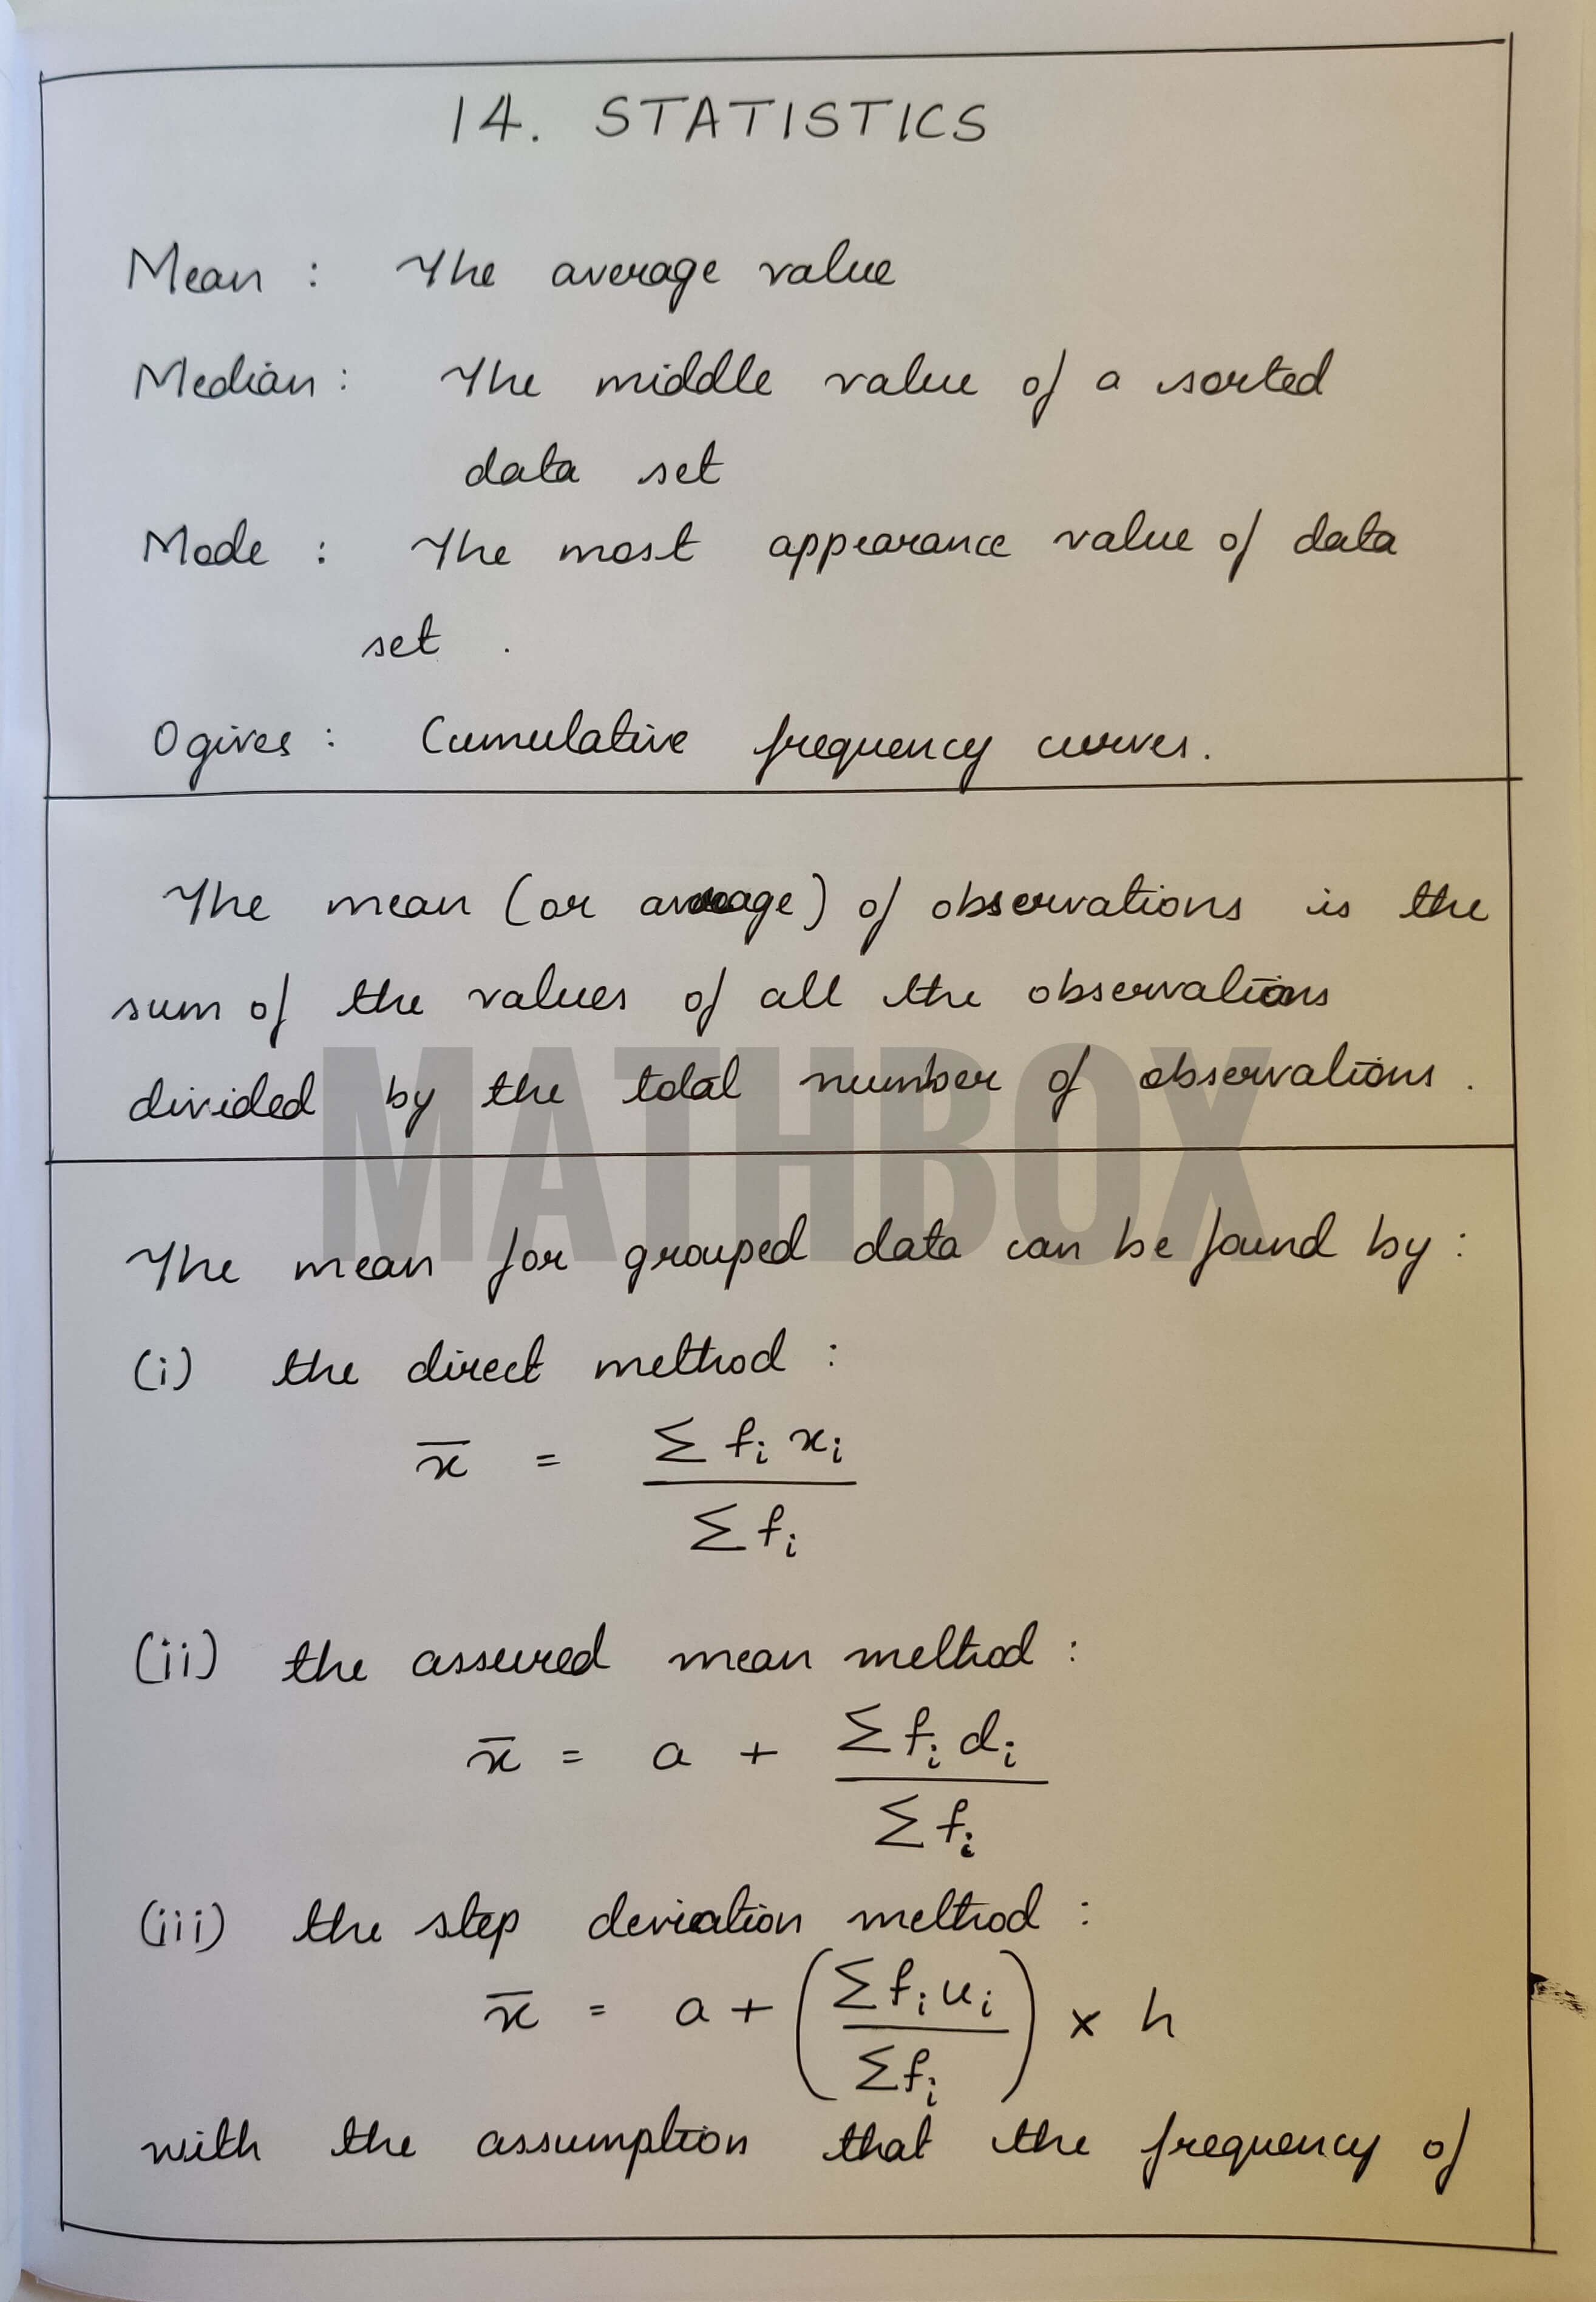 14. STATISTICS
Mean : The average value
Median : The middle value of a sorted
data set
Mode : The most appearance value of data
set .
Ogives : Cumulative frequency curves.
The mean (or average) of observations is the
sum of the values of all the observations
divided by the total number of observations .
MATHBOX
The mean for grouped data can be found by :
(i) the direct method :
x̄ = Σ fᵢ xᵢ / Σ fᵢ
(ii) the assured mean method :
x̄ = a + Σ fᵢ dᵢ / Σ fᵢ
(iii) the step deviation method :
x̄ = a + (Σ fᵢ uᵢ / Σ fᵢ) × h
with the assumption that the frequency of